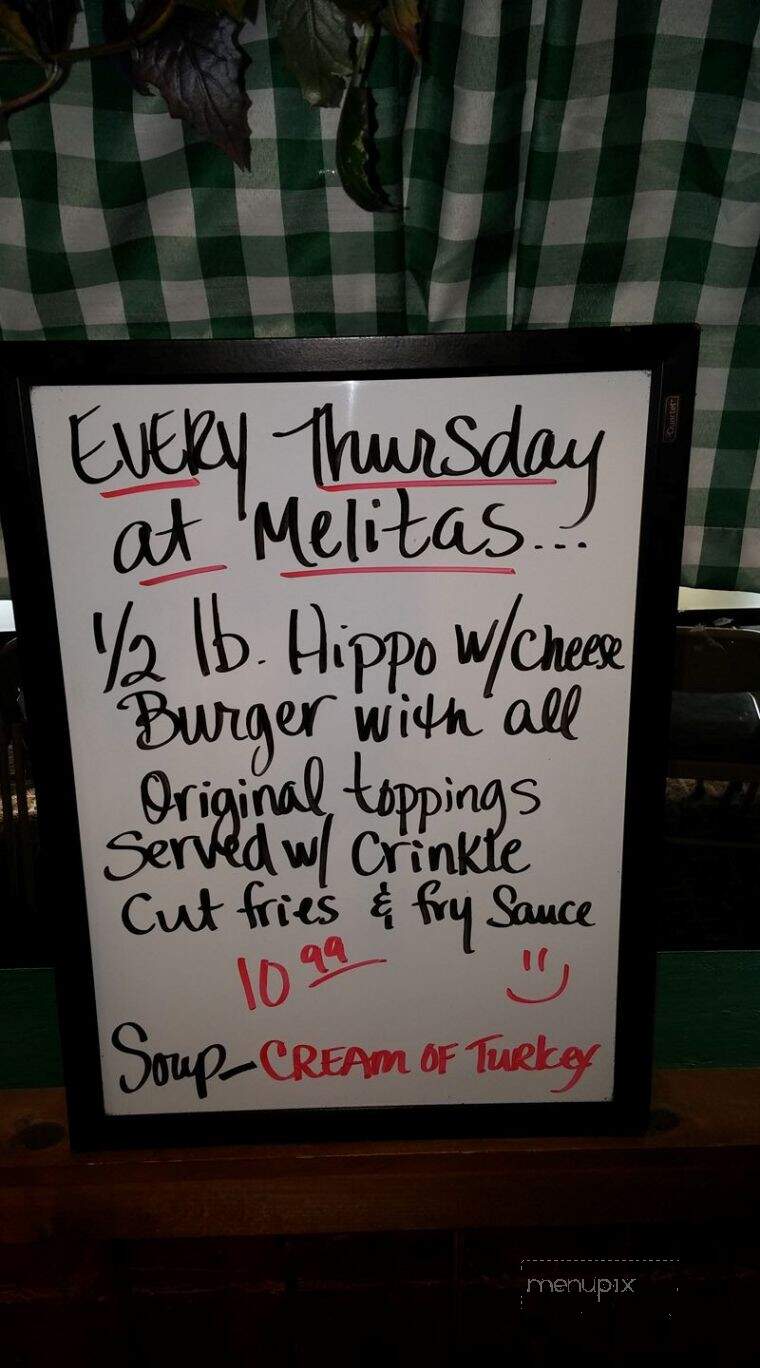 EVERY Thursday
at Melitas...
1/2 lb. Hippo w/cheese
Burger with all
Original toppings
Served w/ Crinkle
Cut fries & fry Sauce
10 99
Soup- CREAM OF TURKEY
menupix